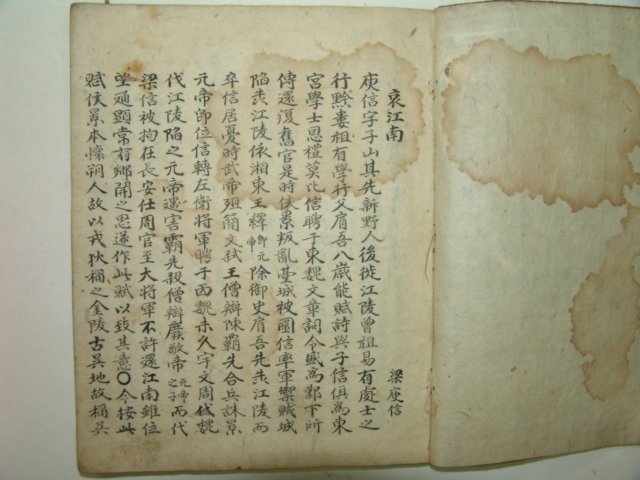 哀江南
梁庾信
庾信字子山其先新野人後徙江陵曾祖易有處士之
行黔婁祖有學行父肩吾八歲能賦詩與子信俱為東
宮學士恩禮莫比信聘于東魏文章詞令盛為鄴下所
傳還復舊官是時侯景叛亂臺城被圍信率軍禦賊城
陷奔江陵依湘東王繹即元帝除御史肩吾先奔江陵而
卒信居憂時武帝殂簡文弒王僧辯陳霸先合兵誅景
元帝即位信轉左衛將軍聘于西魏未久宇文周代魏
代江陵陷之元帝遇害霸先殺僧辯廢敬帝元帝之子而代
梁信被拘在長安仕周官至大將軍不許還江南雖位
望通顯常有鄉關之思遂作此賦以致其意○今按此
賦侯景本懷朔人故以戎狄稱之金陵古吳地故稱吳